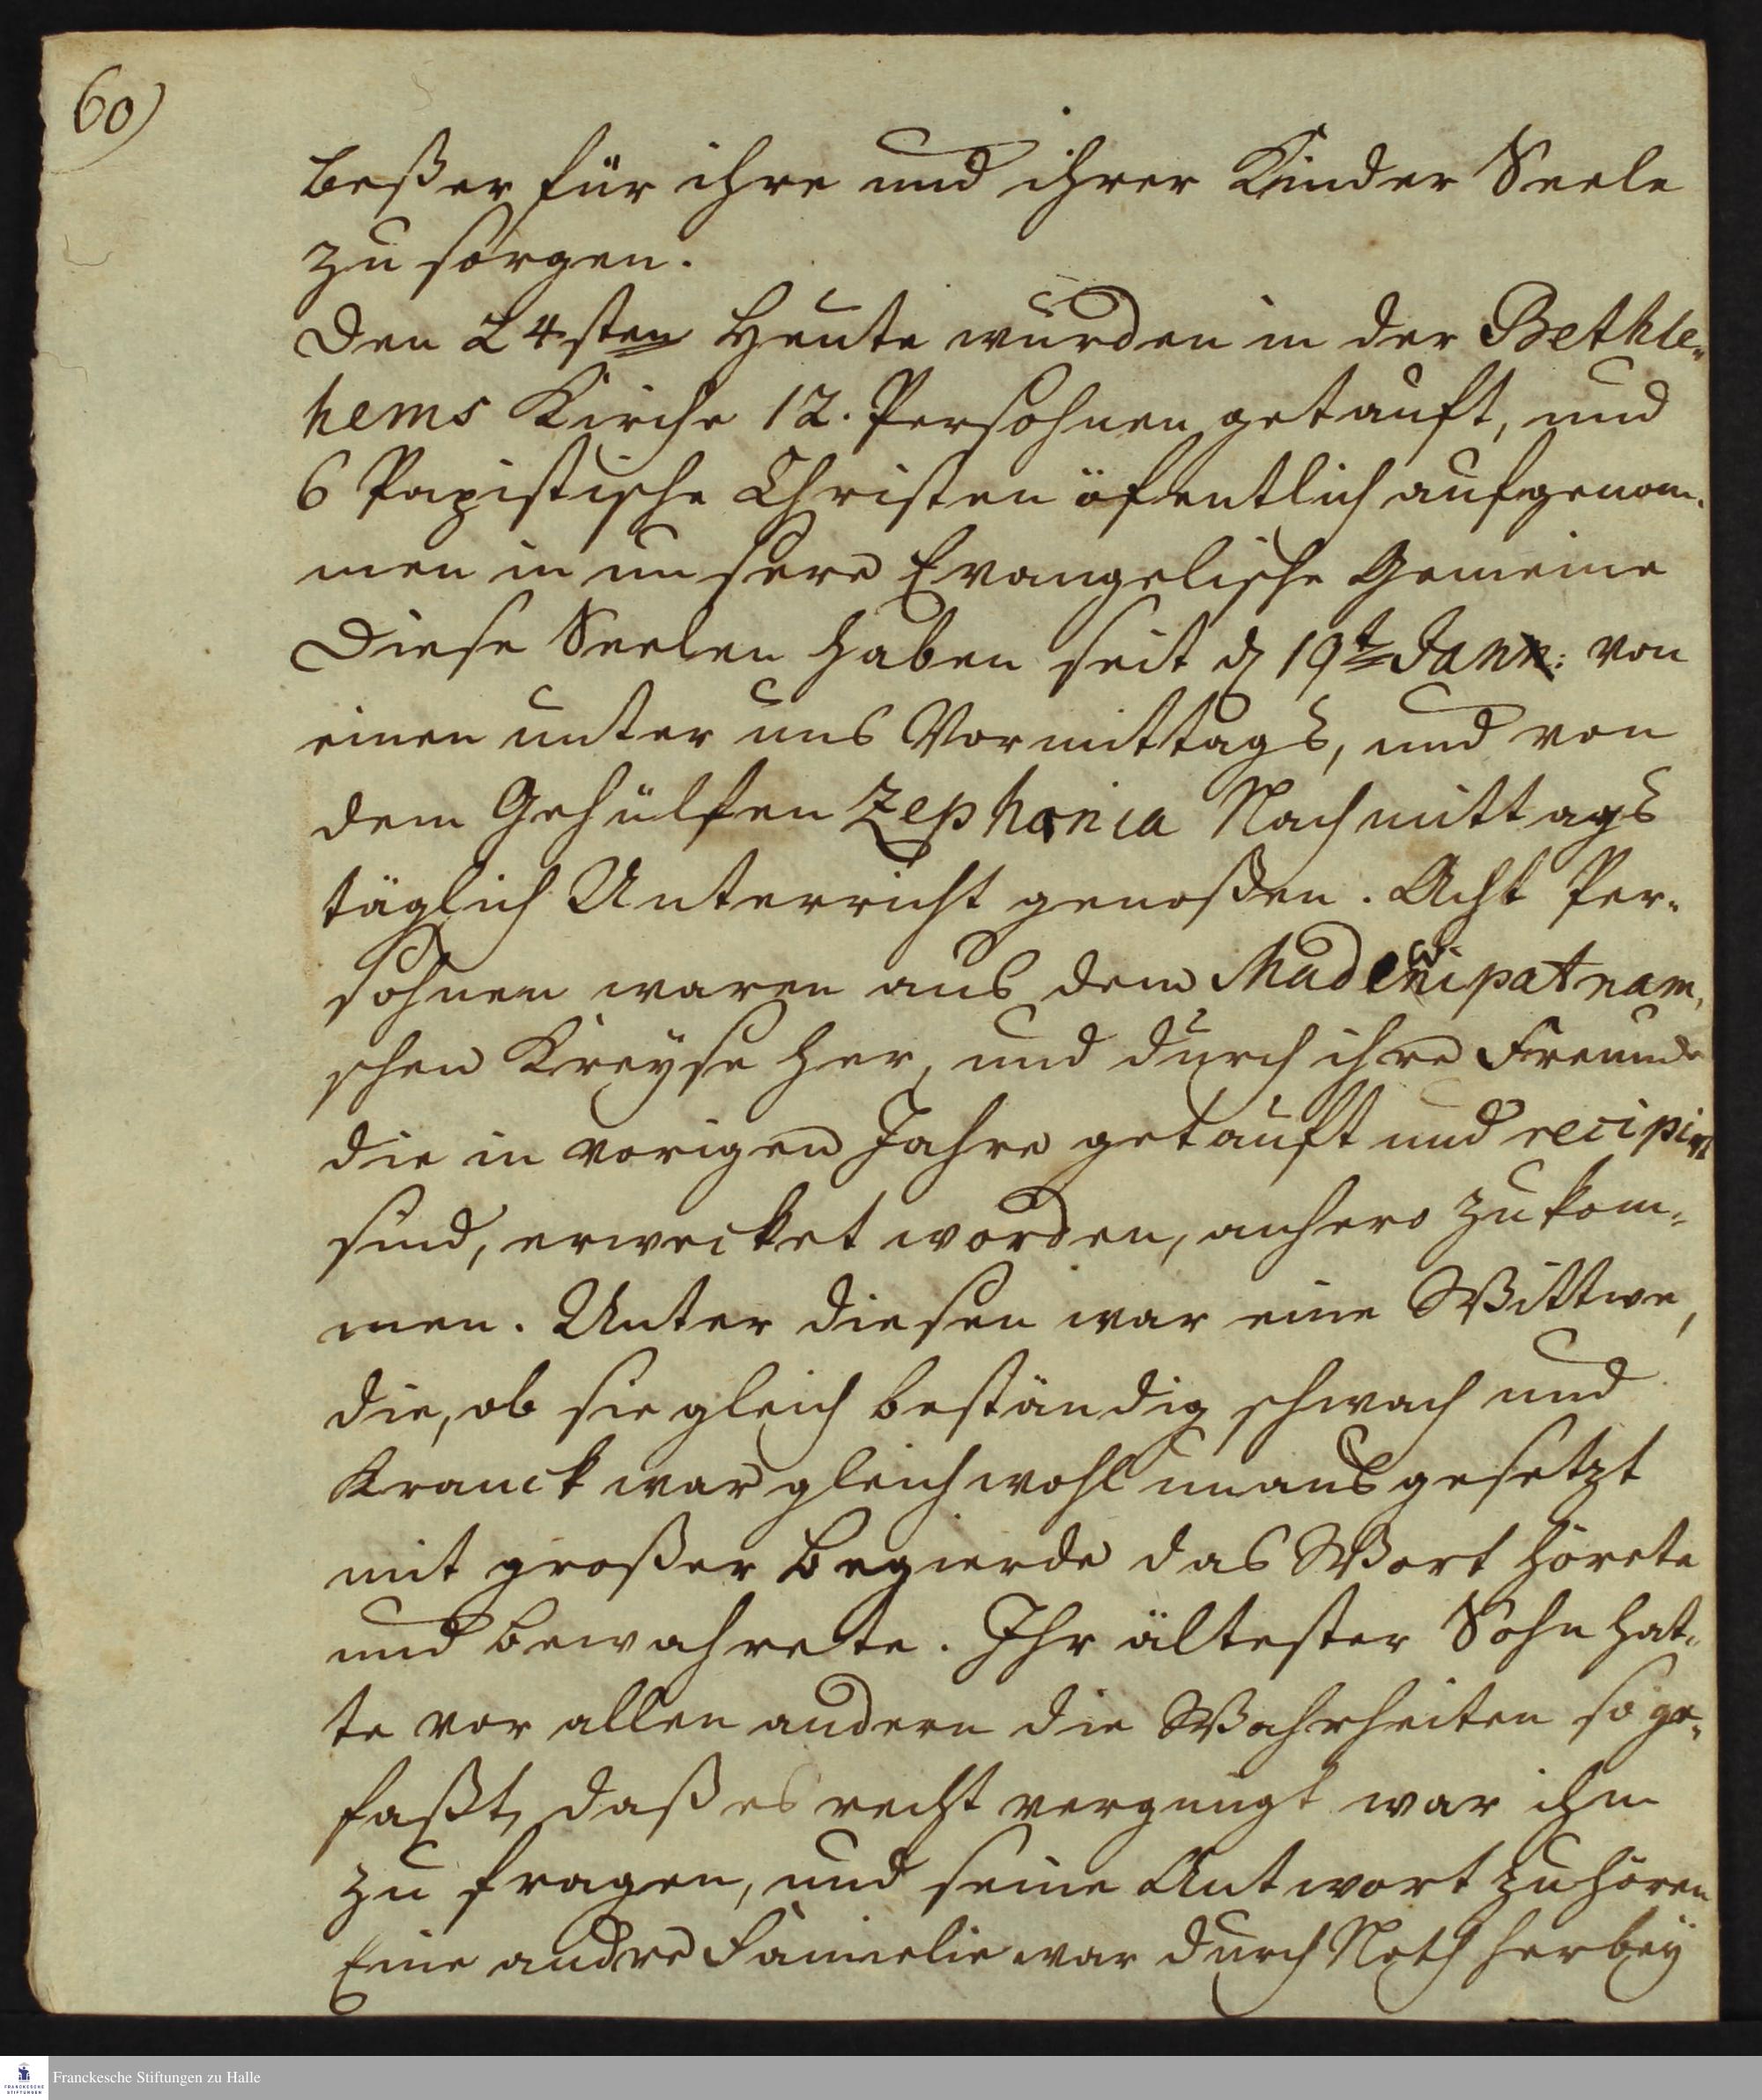 60)
beßer für ihre und ihrer Kinder Seele
zu sorgen.
Den 24sten Heute wurden in der Bethle-
hems Kirche 12. Persohnen getauft, und
6 Papistische Christen öfentlich aufgenom-
men in unsere Evangelische Gemeine
Diese Seelen haben seit d 19t Jan: von
einen unter uns Vormittags, und von
dem Gehülfen Zephania Nachmittags
täglich Unterricht genoßen. Acht Per-
sohnen waren aus dem
schen Kreyse her, und durch ihre Freunde
die in vorigen Jahre getauft und recipirt
sind, erwecket worden, anhero zu kom-
men. Unter diesen war eine Wittwe,
die, ob sie gleich beständig schwach und
Kranck war gleichwohl unausgesetzt
mit großer Begierde das Wort hörete
und bewahrete. Ihr ältester Sohn hat-
te vor allen andern die Wahrheiten so ge-
faßt, daß es recht vergnügt war ihn
zu fragen, und seine Antwort zu hören
Eine andre Famielie war durch Noth herbey
Franckesche Stiftungen zu Halle
FRANCKESCHE
STIFTUNGEN